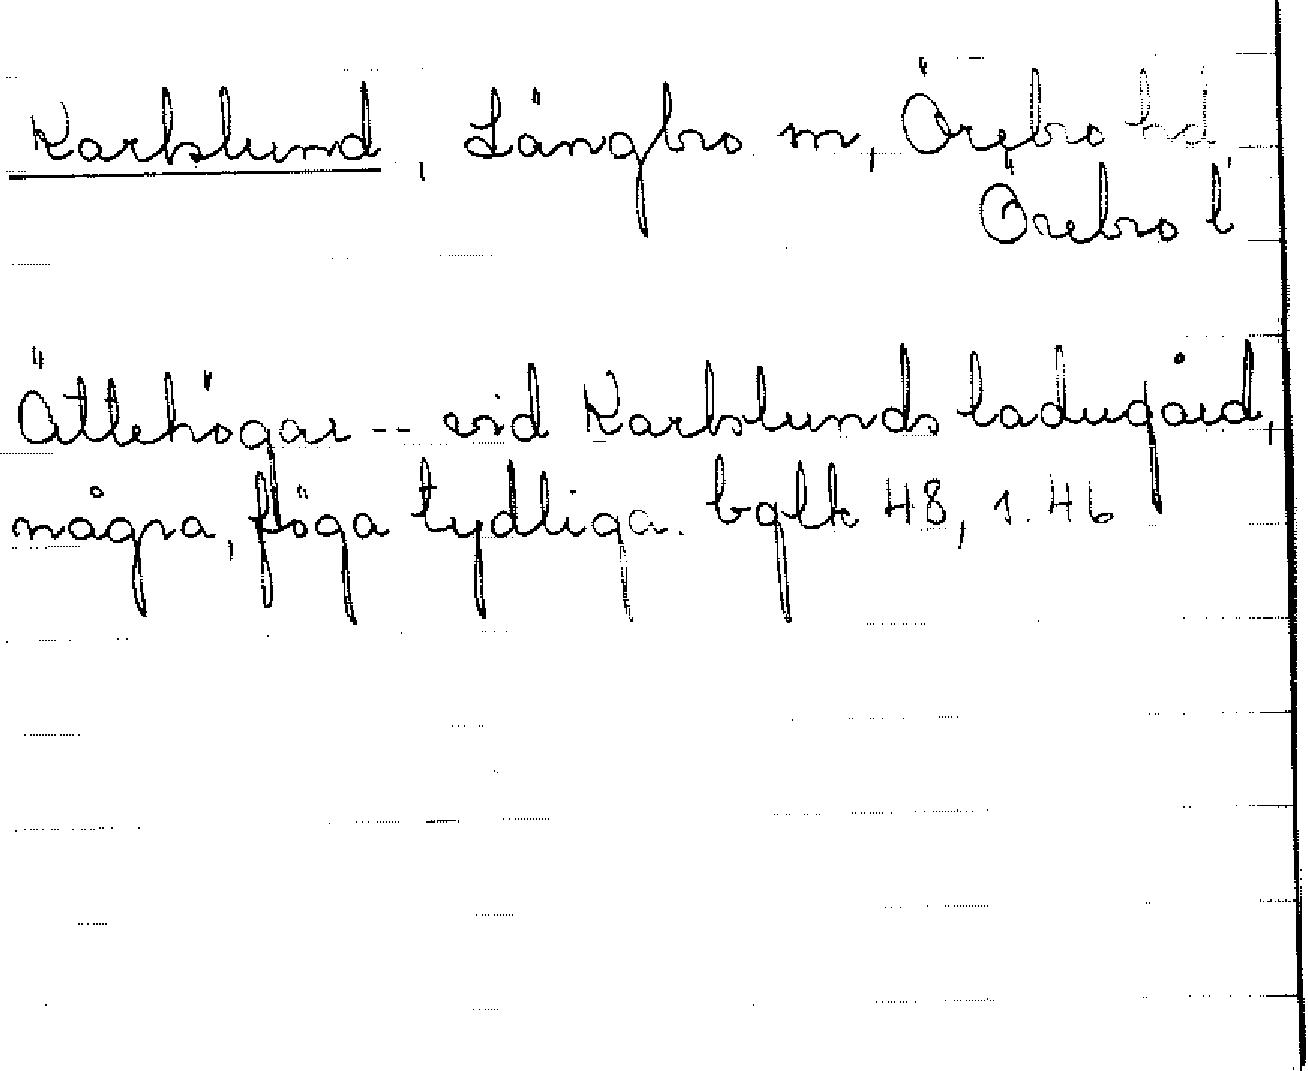 Karlslund, Längbro sn, Örebro hd
Örebro l
Ättehögar -- vid Karlslunds ladugård,
några, föga tydliga. bglk 48, s. 46